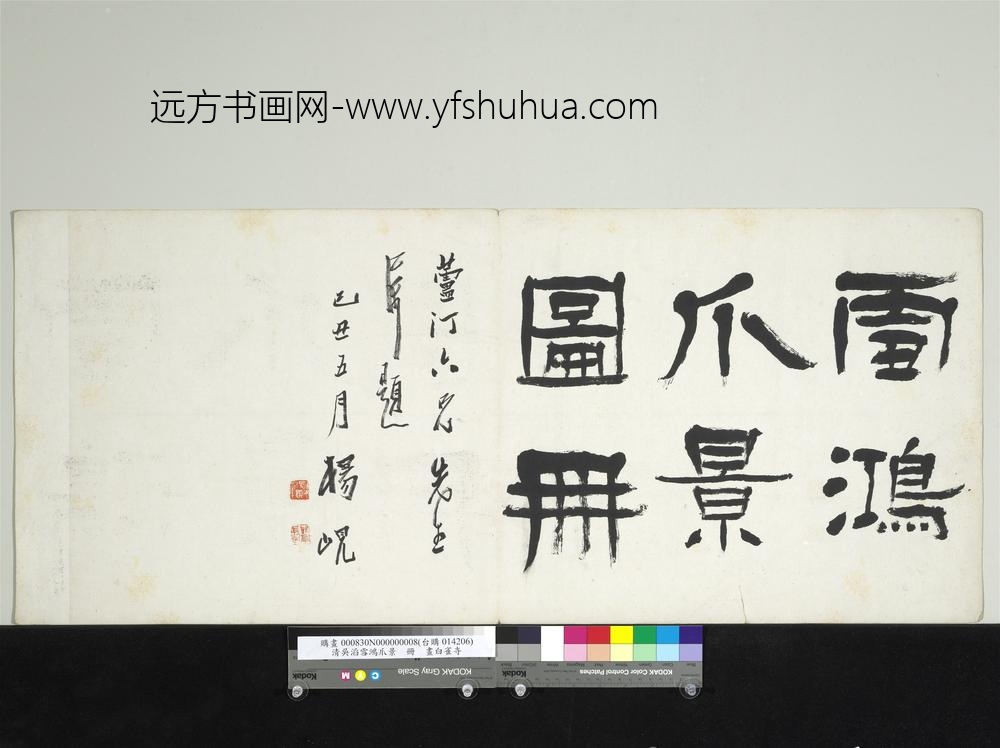 远方书画网-www.yfshuhua.com
雪鴻
爪景
圖冊
蘆汀六兄先生
屬題
己丑五月 楊峴
購畫 000830N000000008(台購 014206)
清吳滔雪鴻爪景 冊 畫白雀寺
Kodak
C Y M
KODAK Gray Scale
Kodak
KODAK Color Control Patches